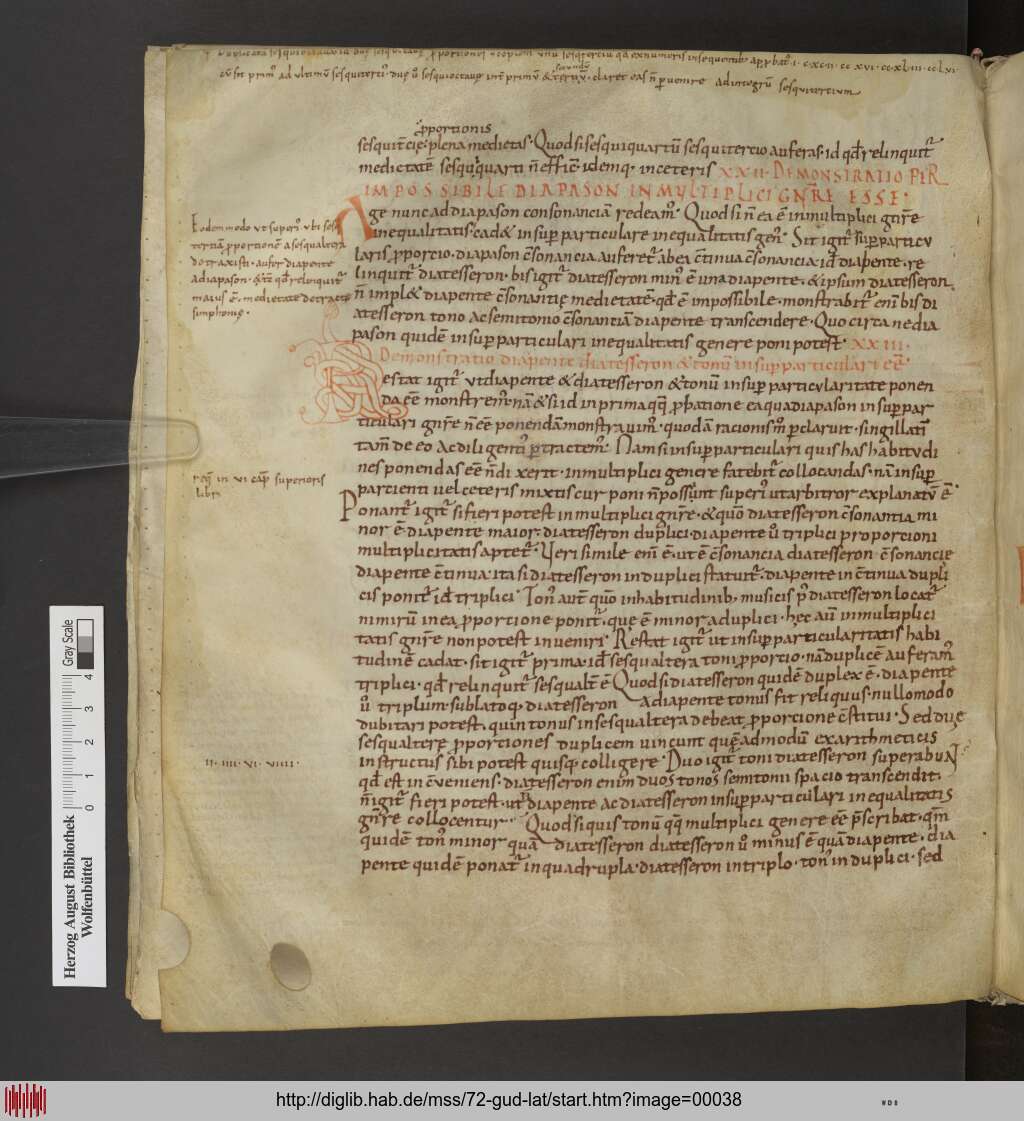 cū sit prim᷒ ad ultimū sesquiterti᷒ duę ū sesquioctauę int̄ primū & tertiū claret eas n̄ ꝑuenire ad integrū sesquitertium
secundū
ꝓportionis
sesquit̄cię plena medietas · Quod si sesquiquartū sesquitertio auferas · id qd̄ relinquit᷑
medietatē sesquiquarti n̄ efficit · idemq· in ceteris XXII · DEMONSTRATIO PER
IMPOSSIBILE DIAPASON IN MULTIPLICI GNR̄E ESSE ·
Age nunc ad diapason consonanciā redeam᷒ · Quod si n̄ ea ē in multiplici gn̄re
inequalitatis · cad& in suꝑ particulare inequalitatis gen᷒ · Sit igit᷑ suꝑparticu
laris ꝓporcio · diapason c̄sonancia auferet᷑ ab ea c̄tinua c̄sonancia · id ē diapente · re
linquit᷑ diatesseron · bis igit᷑ diatesseron min᷒ ē una diapente · & ipsum diatesseron
n̄ impl& diapente c̄sonantię medietatē · qd̄ ē impossibile · monstrabit᷑ eni̅ bis di
atesseron tono ac semitonio c̄sonantiam diapente transcendere · Quo circa ne dia
pason quidē in suꝑparticulari inequalitatis genere poni potest · XXIII ·
Demonstratio diapente diatesseron & tonū in suꝑparticulari eē ·
Restat igit᷑ ut diapente & diatesseron & tonū in suꝑ particularitate ponen
da eē monstrem᷒ · nā & si id in prima q̄q ꝓbatione ea qua diapason in suꝑpar
ticulari gn̄re n̄ eē ponendā monstrauim᷒ · quodā racionis m̄ ꝑclaruit · singillati̅
tam̄ de eo ac diligenti᷒ ꝑtractem᷒ · Nam si in suꝑparticulari quis has habitudi
nes ponendas eē n̄ dixerit · in multiplici genere fatebit᷑ collocandas · nā in suꝑ
partienti uel ceteris mixtis cur poni n̄ possunt superi᷒ ut arbitror explanatū ē ·
Ponant᷑ igit᷑ si fieri potest in multiplici gn̄re · & quō diatesseron c̄sonantia mi
nor ē · diapente maior · diatesseron duplici · diapente ū triplici proporcioni
multiplicitatis aptet᷑ · Veri simile eni̅ ē · ut ē c̄sonancia diatesseron c̄sonancię
diapente c̄tinua · ita si diatesseron in duplici statuit᷑ · diapente in c̄tinua dupli
cis ponit᷑ id ē triplici · Ton᷒ aut̄ quō in habitudinib· musicis p᷒ diatesseron locat᷑
nimirū in ea ꝓporcione ponit᷑ · que ē minor a duplici · hec au̅ in multiplici
tatis gn̄re non potest inueniri · Restat igit᷑ ut in suꝑparticularitatis habi
tudinē cadat · sit igit᷑ prima · id ē sesqualtera toni ꝓporcio · nā duplicē auferam᷒
triplici · qd̄ relinquit᷑ sesqualt̄ ē Quod si diatesseron quidē duplex ē · diapente
ū triplum · sublatoq· diatesseron a diapente tonus fit reliquus · nullo modo
dubitari potest · quin tonus in sesqualtera debeat ꝓporcione c̄stitui · Sed duę
sesqualterę ꝓportiones duplicem uincunt quēadmodū ex arithmeticis
instructus sibi potest quisq· colligere · Duo igit᷑ toni diatesseron superabunt
qd̄ est inc̄ueniens · diatesseron enim duos tonos semitonii spacio transcendit ·
n̄ igit᷑ fieri potest · ut diapente ac diatesseron in suꝑparticulari inequalitatis
gn̄re collocentur · Quod si quis tonū q̄q multiplici genere eē p̄scribat · qm̄
quidē ton᷒ minor quā diatesseron diatesseron ū minus ē quā diapente · dia
pente quidē ponat᷑ in quadrupla · diatesseron in triplo · ton᷒ in duplici · sed
Eodem modo ut superi᷒ ubi ses
tertiam ꝓportionē a sesqualtera
detraxisti · aufer diapente
a diapason · & tc̄ qd̄ relinquit᷑
maius ē · medietate detracte
simphonię ·
in VI cap̄ superioris
libri
II · IIII · VI · VIIII ·
Gray Scale
0 1 2 3 4
Herzog August Bibliothek
Wolfenbüttel
http://diglib.hab.de/mss/72-gud-lat/start.htm?image=00038